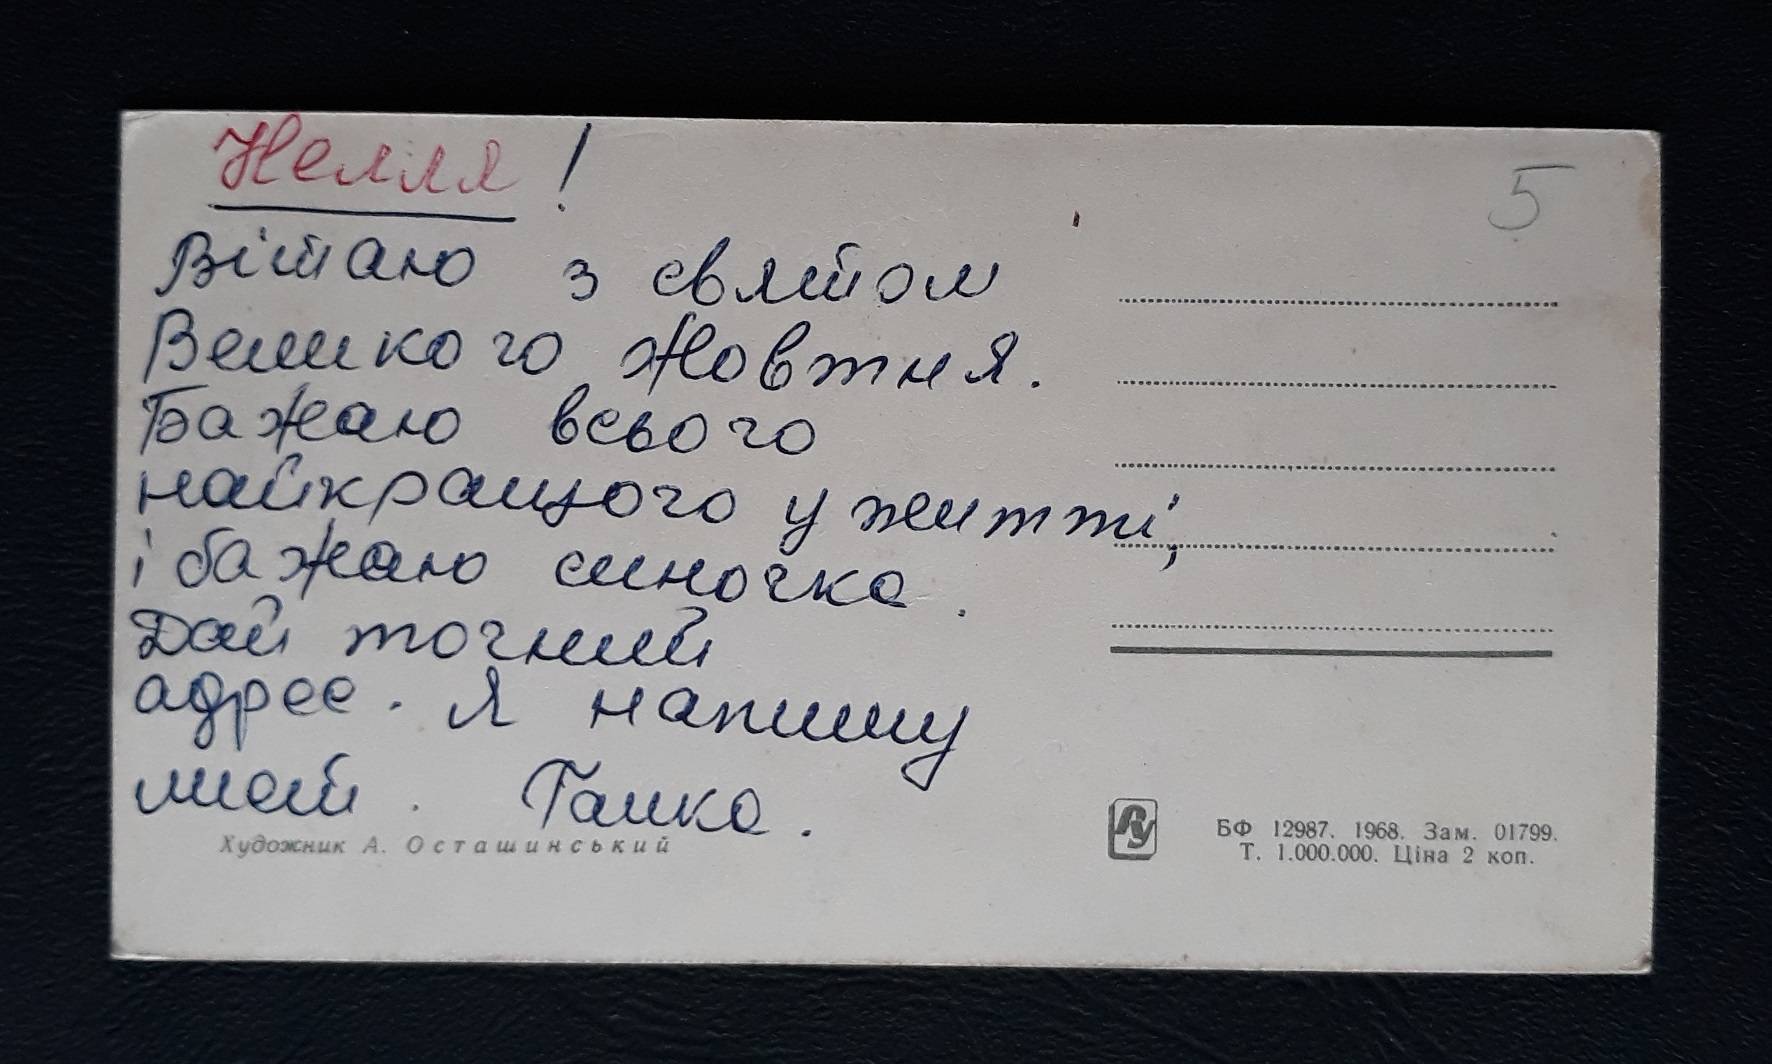 Нелля!
5
Вітаю з святом
Великого Жовтня.
Бажаю всього
найкращого у житті,
і бажаю синочка.
Дай точний
адрес. Я напишу
лист. Галка.
Художник А. Осташинський
БФ 12987. 1968. Зам. 01799.
Т. 1.000.000. Ціна 2 коп.